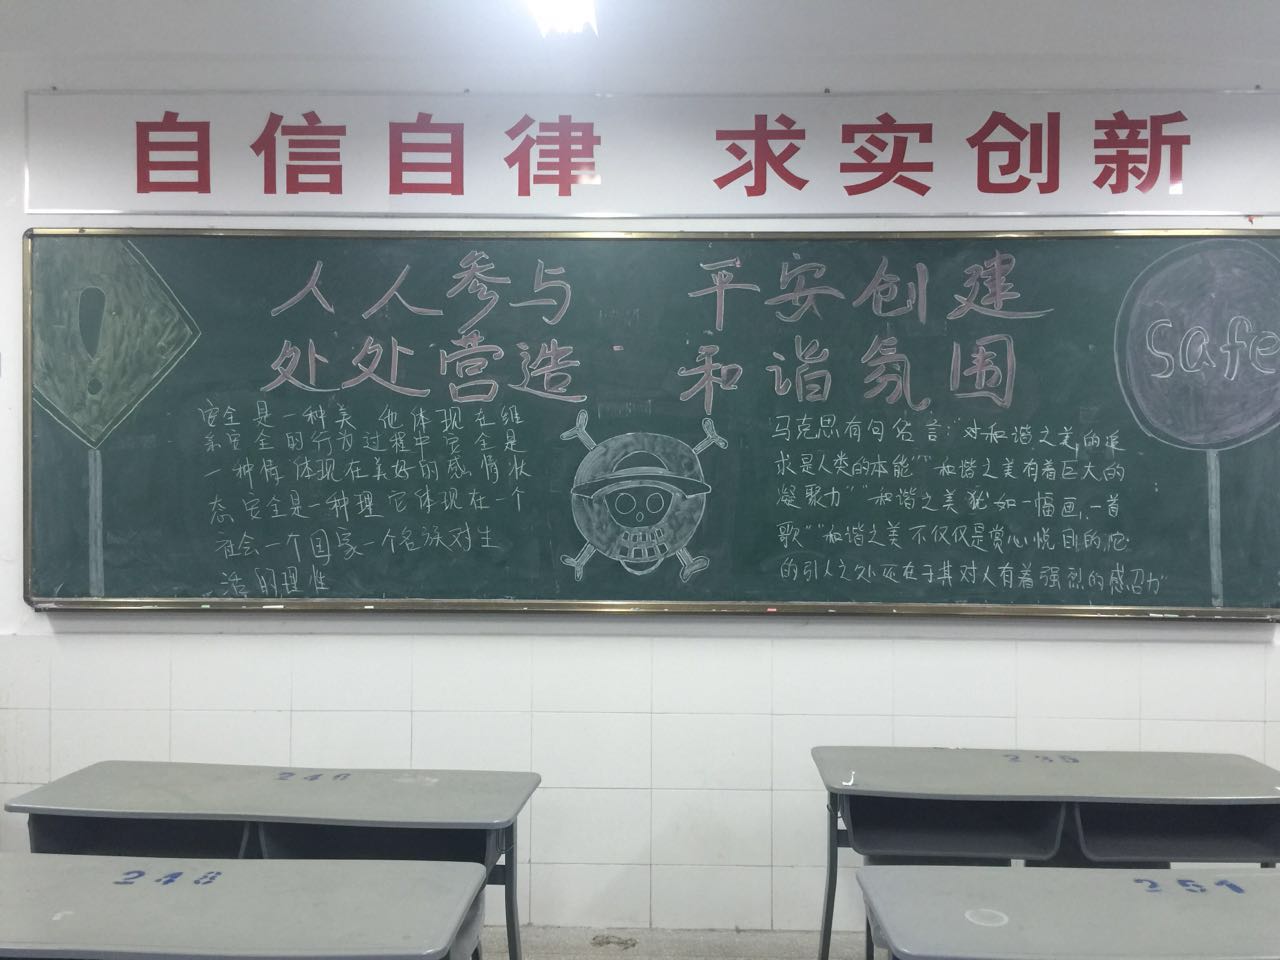 自信自律 求实创新
人人参与 平安创建
处处营造 和谐氛围
安全是一种美 他体现在维
系安全的行为过程中安全是
一种情 体现在美好的感情状
态 安全是一种理 它体现在一个
社会一个国家一个名族对生
活的理性
马克思有句名言："对和谐之美的追
求是人类的本能""和谐之美有着巨大的
凝聚力""和谐之美犹如一幅画、一首
歌""和谐之美不仅仅是赏心悦目的,它
的引人之处还在于其对人有着强烈的感召力"
Safe
246
235
248
251